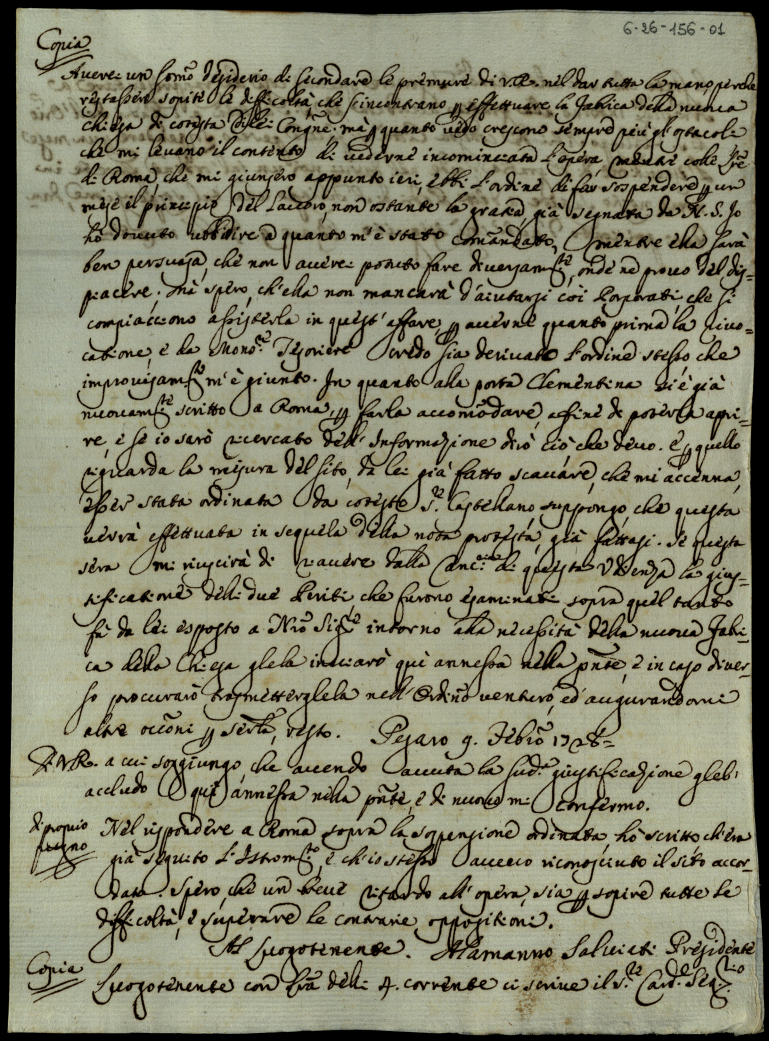 6-26-156-01
Copia
Averei un som̃o desiderio di secondare le premure di V.R. nel dar tutta la mano perche
restassero sopite le difficoltà, che s'incontrano p effettuare la fabica della nuova
chiesa di cotesta Congñe: mà p quanto vedo crescono sempre più gl'ostacoli
che mi levano il contento di vederne incominciata l'opera, mentre colle
di Roma, che mi giunsero appunto ieri, ebbi l'ordine di far sospendere p un
mese il principio del lavoro, non ostante la grazia, già segnata da N. S. Io
hò dovuto ubbidire à quanto m'è stato comandato, mentre ella sarà
ben persuasa, che non averei potuto fare diversam.te, onde ne provo del dis=
piacere. Mà spero, ch'ella non mancarà d'aiutarsi coi Porporati, che si
compiacciono assisterla in quest'affare, p averne quanto prima la rivo=
catione, e da Mons.r Tesoriere credo sia derivato l'ordine stesso che
improvisam.te m'è giunto. In quanto alla porta Clementina si è già
nuovam.te scritto a Roma, p farla accomodare, affine di poterla apri=
re, e se io sarò ricercato dell'Informazione dirò ciò che devo. E p quello
riguarda la misura del sito, da lei già fatto scavare, che mi accenna,
esser stata ordinata da cotesto S.r Castellano, suppongo, che questa
verrà effettuata in sequela della nota protesta, già fattasi. Se questa
sera mi riuscirà di riavere dalla Canc. di questa Udienza la gius=
tificatione delli due Periti, che furono esaminati sopra quel tanto
fù da lei esposto a Nrõ Sig.re intorno alla necessità della nuova fabi=
ca della Chiesa glela inviarò quì annessa nella pñte, e in caso diver=
so procurarò trasmetterglela nell'Ordinõ venturo, ed augurandomi
altre occõni p serv.la, resto. Pesaro 9. Febrõ 1728=
D. V.R. a cui soggiungo, che avendo avuta la sud.a giustificazione gleb
accludo quì annessa nella pñte, e di nuovo mi confermo.
di proprio
pugno
Nel rispondere a Roma sopra la sopensione ordinata, hò scritto ch'era
già seguito l'Istrom.to, e ch'io stesso avevo riconosciuto il sito accor=
data. Spero, che un breve ritardo all'opera, sia p sopire tutte le
difficoltà, e superare le contrarie oppositioni.
Al Luogotenente. Alamanno Salviati Presidente
Copia
Luogotenente con lrã delli 4. corrente ci scrive il S.r Card.e Seg.rio